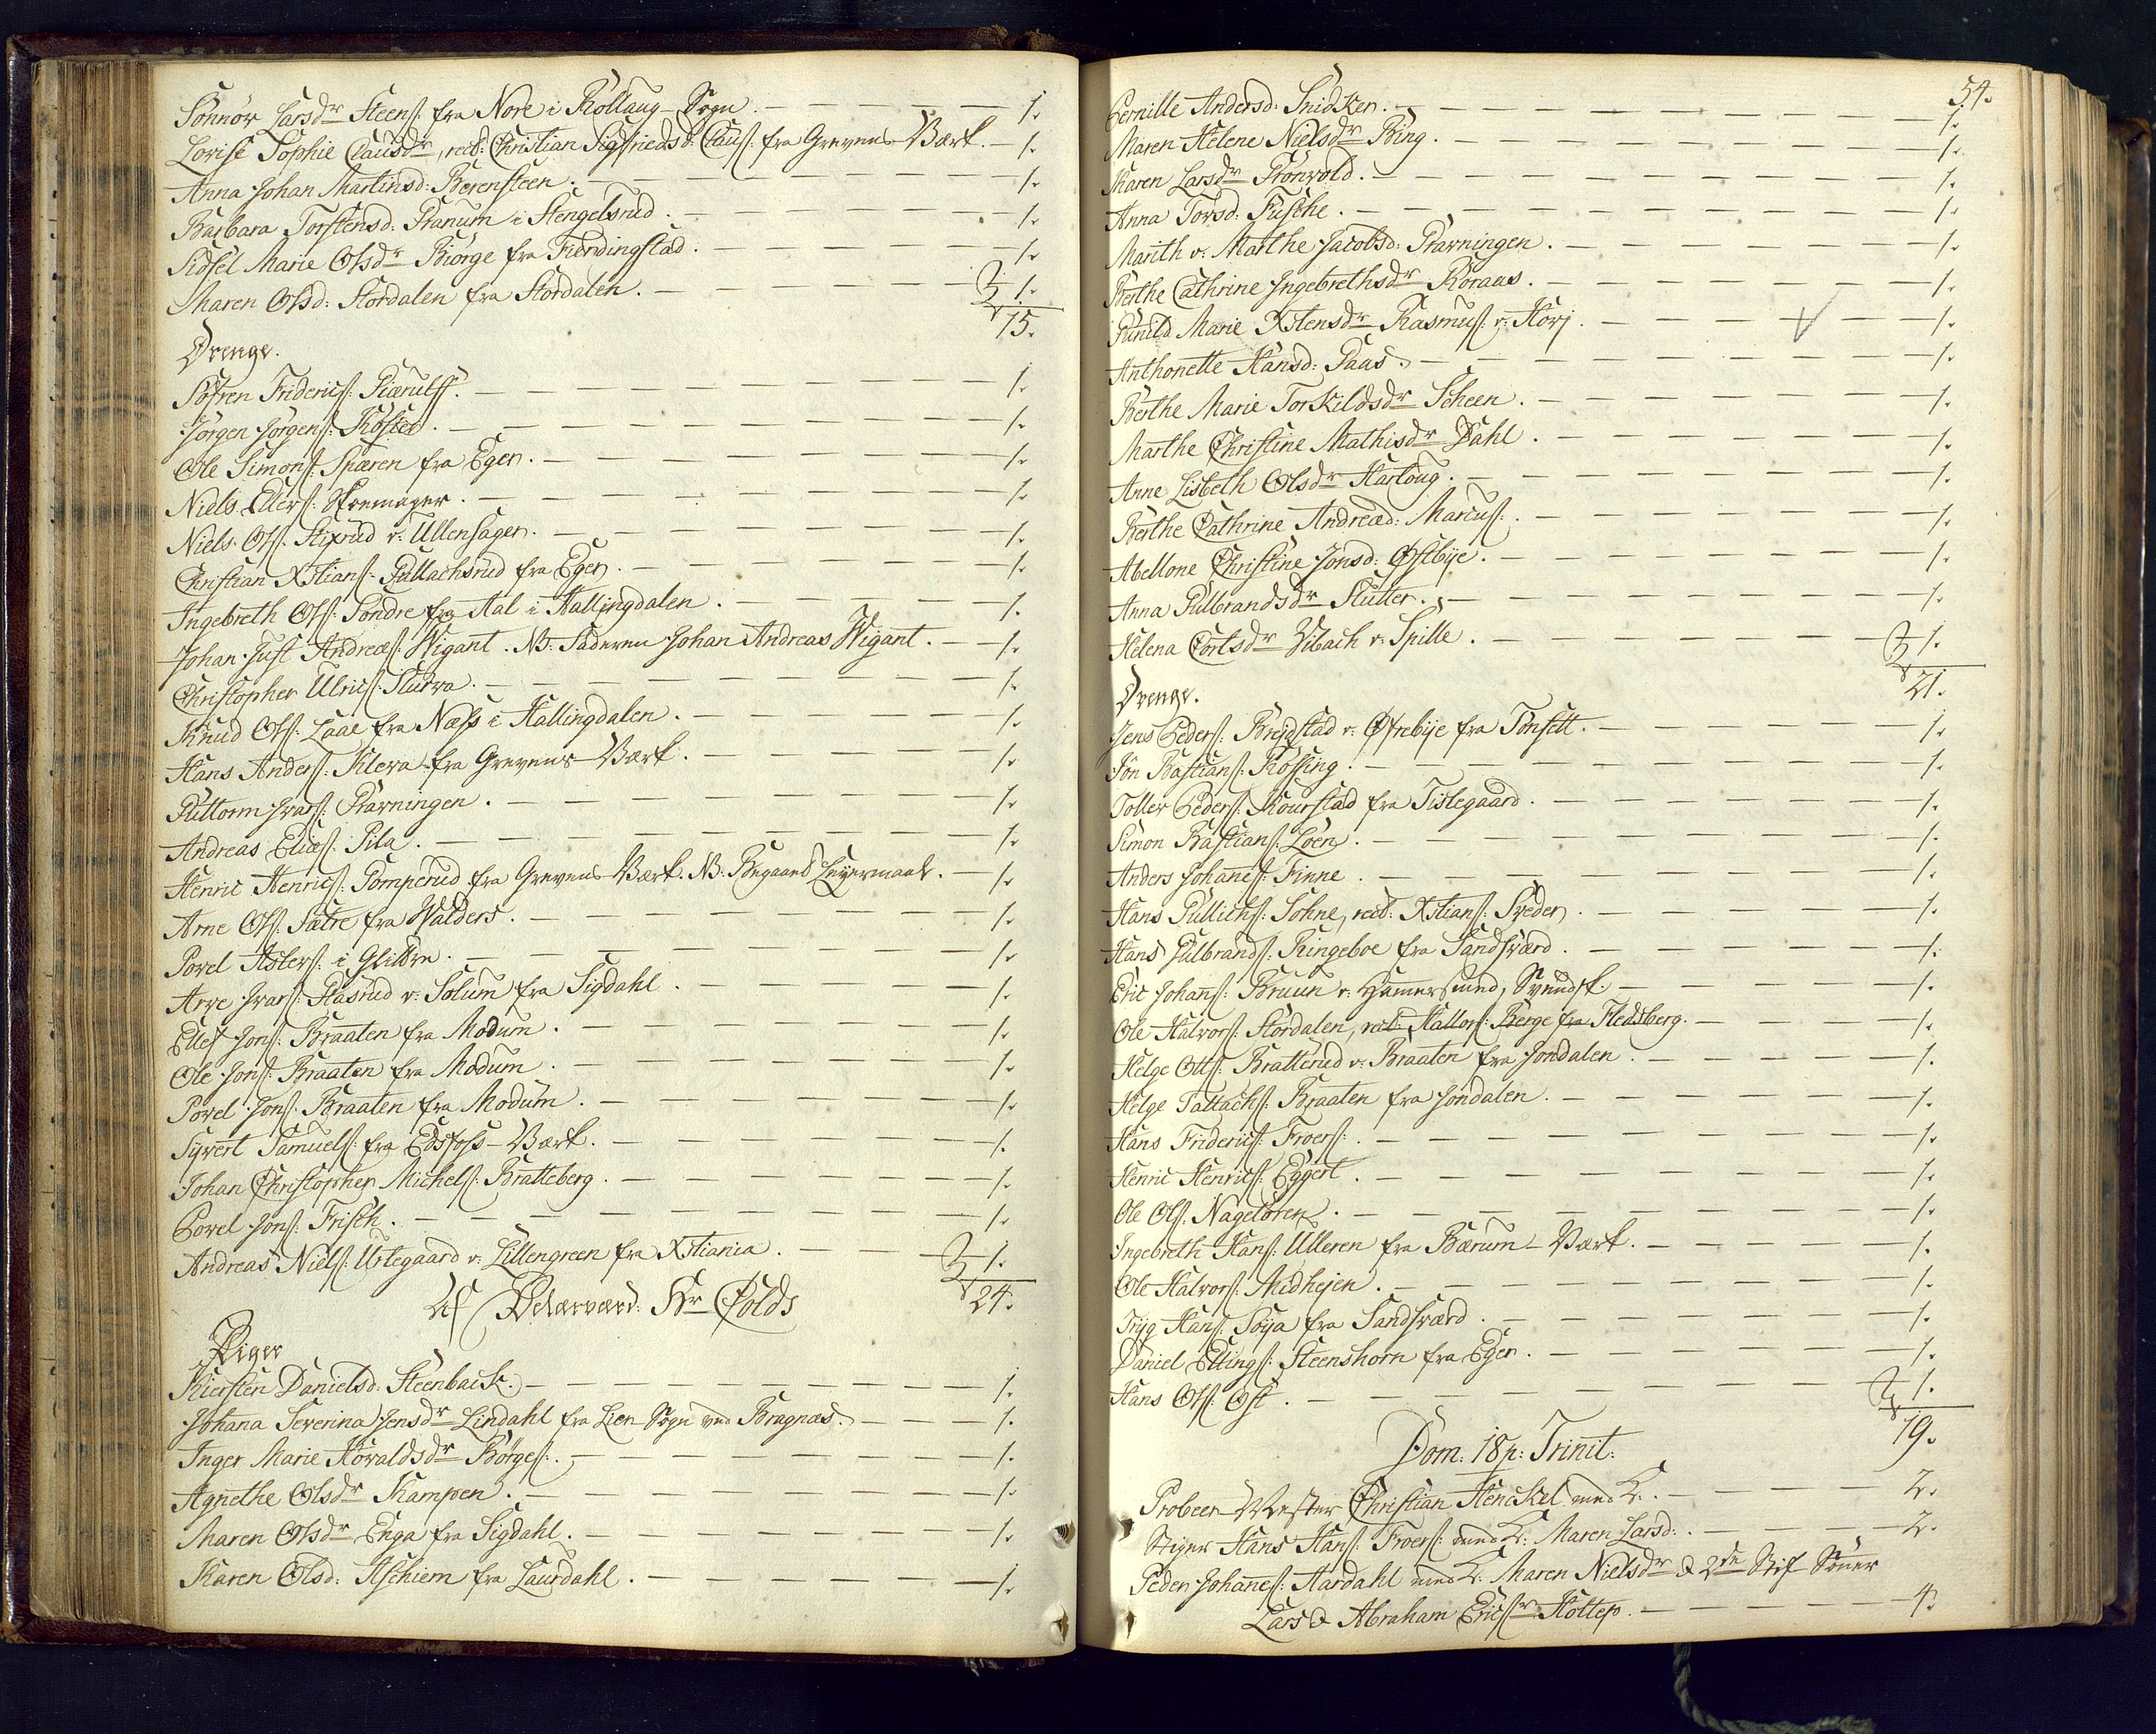 Sønnøv Larsdr Steens: fra Nore i Rollaug-Sogn. — 1.
Lovise Sophie Clausdr, rect: Christian Sigfriedsd: Claus: fra Grevens-Værk. — 1.
Anna Johan Martinsd: Berensteen. — 1.
Barbara Torstensd: Granum i Stengelsrud. — 1.
Sidsel Marie Olsdr Biørge fra Fierdingstad. — 1.
Maren Olsd: Stordalen fra Stordalen. — 1.
15.
Drenge.
Søfren Frideric: Giærulff. — 1.
Jørgen Jørgens: Røsted. — 1.
Ole Simons: Spæren fra Eger. — 1.
Niels Ellers: Skremager. — 1.
Niels Ols: Stixrud v: Ullensager. — 1.
Christian Xstians: Gullachsrud fra Eger. — 1.
Ingebreth Ols: Søndre fra Aal i Hallingdalen. — 1.
Johan Just Andreæs: Wigant. NB: Faderen Johan Andreas Wigant. — 1.
Christopher Ulrics: Slurva. — 1.
Knud Ols: Laae fra Næss i Hallingdalen. — 1.
Hans Anders: Kleva fra Grevens-Værk. — 1.
Guttorm Ivars: Gravningen. — 1.
Andreas Eliæs: Pila. — 1.
Henric Henrics: Gomperud fra Grevens-Værk. NB: Begaaed Leyermaal. — 1.
Arne Ols: Sætre fra Walders. — 1.
Povel Aslers: i Glittre. — 1.
Arve Ivars: Aasrud v: Solum fra Sigdahl. — 1.
Ellef Jons: Braaten fra Modum. — 1.
Ole Jons: Braaten fra Modum. — 1.
Povel Jons: Braaten fra Modum. — 1.
Syvert Samuels: fra Edsfoss-Værk. — 1.
Johan Christopher Michels: Bratteberg. — 1.
Povel Jons: Frisch. — 1.
Andreas Niels: Urtegaard v: Lillengreen fra Xstiania. — 1.
24.
Af Velærværd: Hr Colds
Piger
Kiersten Danielsd: Steenback. — 1.
Johana Severina Jensdr Lindahl fra Lier Sogn ved Bragnæs. — 1.
Inger Marie Hovaldsdr Børges: — 1.
Agnethe Olsdr Kampen. — 1.
Maren Olsdr Enga fra Sigdahl. — 1.
Karen Olsd: Aschiem fra Laurdahl. — 1.
54.
Pernille Andersd: Snidker. — 1.
Maren Helene Nielsdr Bing. — 1.
Karen Larsdr Grønvold. — 1.
Anna Torsd: Fusche. — 1.
Marith v: Marthe Jacobsd: Gravningen. — 1.
Berthe Cathrine Ingebrethsdr Roraas. — 1.
Gunild Marie Xstensdr Rasmus: v: Horj. — 1.
Anthonette Hansd: Paas. — 1.
Berthe Marie Torkildsdr Scheen. — 1.
Marthe Christine Mathisdr Dahl. — 1.
Anne Lisbeth Olsdr Hartoug. — 1.
Berthe Cathrine Andreæd: Marcus: — 1.
Abellone Christine Jonsd: Østbije. — 1.
Anna Gulbrandsdr Slutter. — 1.
Helena Cortsdr Zibach v: Spille. — 1.
21.
Drenge.
Jens Peders: Brejdstad v: Øfrebije fra Tønsett. — 1.
Jon Bastians: Røssing. — 1.
Toller Peders: Kourstad fra Tislegaard. — 1.
Simon Bastians: Løen. — 1.
Anders Johanes: Finne. — 1.
Hans Gullichs: Sohne, rect: Xstians: Sveder. — 1.
Hans Gulbrands: Ringeboe fra Sandsværd. — 1.
Eric Johans: Bruun v: Hammersund, Svendsk. — 1.
Ole Halvors: Stordalen, rect: Hallors: Berge fra Fledsberg. — 1.
Helge Otts: Bratterud v: Braaten fra Jondalen. — 1.
Helge Tallachs: Braaten fra Jondalen. — 1.
Hans Frideric: Froers: — 1.
Henric Henrics: Eggert. — 1.
Ole Ols: Nageløren. — 1.
Ingebreth Hans: Ulleren fra Bærum-Værk. — 1.
Ole Halvors: Midhejen. — 1.
Tryg Hans: Soya fra Sandsværd. — 1.
Daniel Ellings: Steenshorn fra Eger. — 1.
Hans Ols: Ost. — 1.
19.
Dom: 18 p: Trinit:
Probeer-Mester Christian Henckel med K: — 2.
Stiger Hans Hans: Froers: med K: Maren Larsd: — 2.
Peder Johanes: Aardahl med K: Maren Nielsdr & 2de Stif Sønner
Lars & Abraham Ericsr Holtep. — 4.